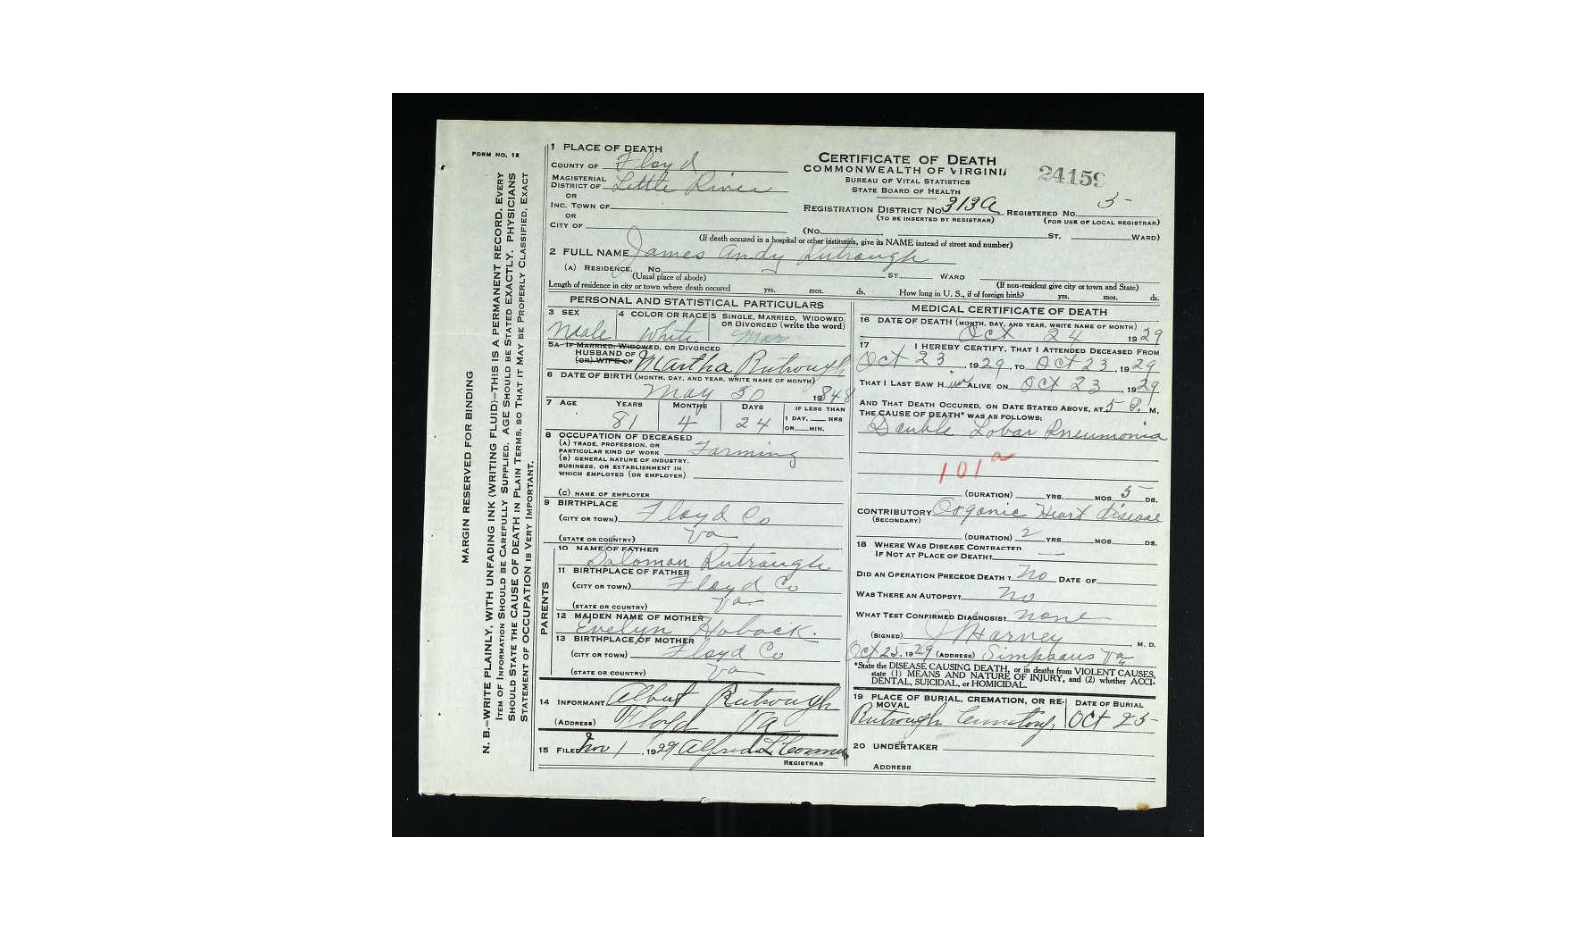 FORM NO. 12
MARGIN RESERVED FOR BINDING
N. B.—WRITE PLAINLY, WITH UNFADING INK (WRITING FLUID)—THIS IS A PERMANENT RECORD. EVERY
ITEM OF INFORMATION SHOULD BE CAREFULLY SUPPLIED. AGE SHOULD BE STATED EXACTLY. PHYSICIANS
SHOULD STATE THE CAUSE OF DEATH IN PLAIN TERMS, SO THAT IT MAY BE PROPERLY CLASSIFIED. EXACT
STATEMENT OF OCCUPATION IS VERY IMPORTANT.
1 PLACE OF DEATH
COUNTY OF Floyd
MAGISTERIAL
DISTRICT OF Little River
OR
INC. TOWN OF
OR
CITY OF
CERTIFICATE OF DEATH
COMMONWEALTH OF VIRGINIA
BUREAU OF VITAL STATISTICS
STATE BOARD OF HEALTH
24159
REGISTRATION DISTRICT NO. 313A REGISTERED NO. 5
(TO BE INSERTED BY REGISTRAR) (FOR USE OF LOCAL REGISTRAR)
(NO. ST. WARD)
(If death occured in a hospital or other institution, give its NAME instead of street and number)
2 FULL NAME James Andy Rutrough
(A) RESIDENCE. NO. ST. WARD
(Usual place of abode) (If non-resident give city or town and State)
Length of residence in city or town where death occured yrs. mos. ds. How long in U. S., if of foreign birth? yrs. mos. ds.
PERSONAL AND STATISTICAL PARTICULARS
3 SEX 4 COLOR OR RACE 5 SINGLE, MARRIED, WIDOWED
OR DIVORCED (write the word)
Male White Mar
5A IF MARRIED, WIDOWED, OR DIVORCED
HUSBAND OF
(OR) WIFE OF Martha Rutrough
6 DATE OF BIRTH (MONTH, DAY, AND YEAR, WRITE NAME OF MONTH)
May 30 1848
7 AGE YEARS MONTHS DAYS IF LESS THAN
1 DAY, HRS
OR MIN.
81 4 24
8 OCCUPATION OF DECEASED
(A) TRADE, PROFESSION, OR
PARTICULAR KIND OF WORK Farming
(B) GENERAL NATURE OF INDUSTRY,
BUSINESS, OR ESTABLISHMENT IN
WHICH EMPLOYED (OR EMPLOYER)
(C) NAME OF EMPLOYER
9 BIRTHPLACE
(CITY OR TOWN) Floyd Co
(STATE OR COUNTRY) Va
PARENTS
10 NAME OF FATHER
Saloman Rutrough
11 BIRTHPLACE OF FATHER
(CITY OR TOWN) Floyd Co
(STATE OR COUNTRY) Va
12 MAIDEN NAME OF MOTHER
Evelyn Hoback.
13 BIRTHPLACE OF MOTHER
(CITY OR TOWN) Floyd Co
(STATE OR COUNTRY) Va
14 INFORMANT Albert Rutrough
(ADDRESS) Floyd Va
15 FILED Nov 1, 1929 Alfred L
REGISTRAR
MEDICAL CERTIFICATE OF DEATH
16 DATE OF DEATH (MONTH, DAY, AND YEAR, WRITE NAME OF MONTH)
Oct 24 1929
17 I HEREBY CERTIFY, THAT I ATTENDED DECEASED FROM
Oct 23, 1929, TO Oct 23, 1929
THAT I LAST SAW H im ALIVE ON Oct 23, 1929
AND THAT DEATH OCCURED, ON DATE STATED ABOVE, AT 5 M.
THE CAUSE OF DEATH* WAS AS FOLLOWS:
Double Lobar Pneumonia
101a
(DURATION) YRS. MOS. 5 DS.
CONTRIBUTORY Organic Heart disease
(SECONDARY)
(DURATION) 2 YRS. MOS. DS.
18 WHERE WAS DISEASE CONTRACTED
IF NOT AT PLACE OF DEATH?
DID AN OPERATION PRECEDE DEATH? No DATE OF
WAS THERE AN AUTOPSY? No
WHAT TEST CONFIRMED DIAGNOSIS? none
(SIGNED) Harney M. D.
Oct 25, 1929 (ADDRESS) Simpsons Va
*State the DISEASE CAUSING DEATH, or in deaths from VIOLENT CAUSES,
state (1) MEANS AND NATURE OF INJURY, and (2) whether ACCI-
DENTAL, SUICIDAL, or HOMICIDAL.
19 PLACE OF BURIAL, CREMATION, OR RE-
MOVAL DATE OF BURIAL
Rutrough Cemetery, Oct 25
20 UNDERTAKER
ADDRESS